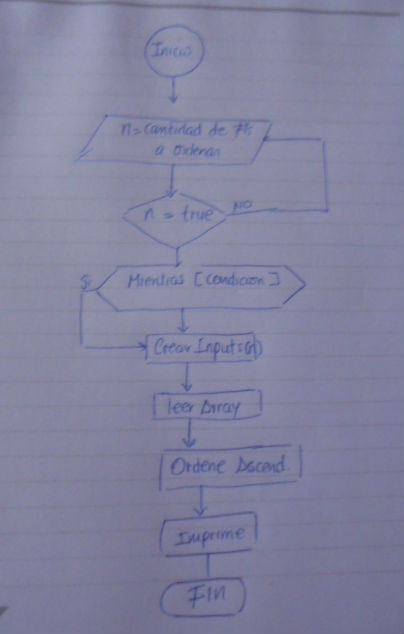 Inicio
n = cantidad de #s
a ordenar
n = true
NO
Mientras [condicion]
Si
Crear Inputs(n)
leer Array
Ordene Ascend.
Imprime
FIN